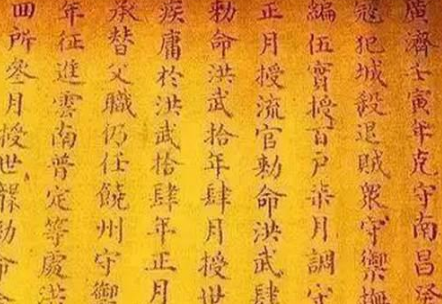 廣濟壬寅年克守南昌
冦犯城殺退賊衆守禦撫
編伍實授百户柒月調守
正月授流官勅命洪武肆
勅命洪武拾年肆月授世
疾庸於洪武拾肆年正月
承替父職仍任饒州守禦
年征進雲南普定等處洪
回所叁月授世襲勅命